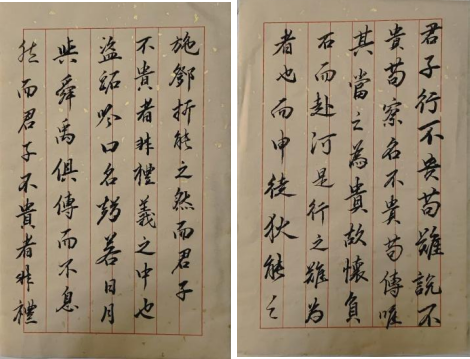 君子行不貴苟難說不
貴苟察名不貴苟傳唯
其當之為貴故懷負
石而赴河是行之難為
者也而申徒狄能之
施鄧析能之然而君子
不貴者非禮義之中也
盜跖吟口名聲若日月
與舜禹俱傳而不息
然而君子不貴者非禮